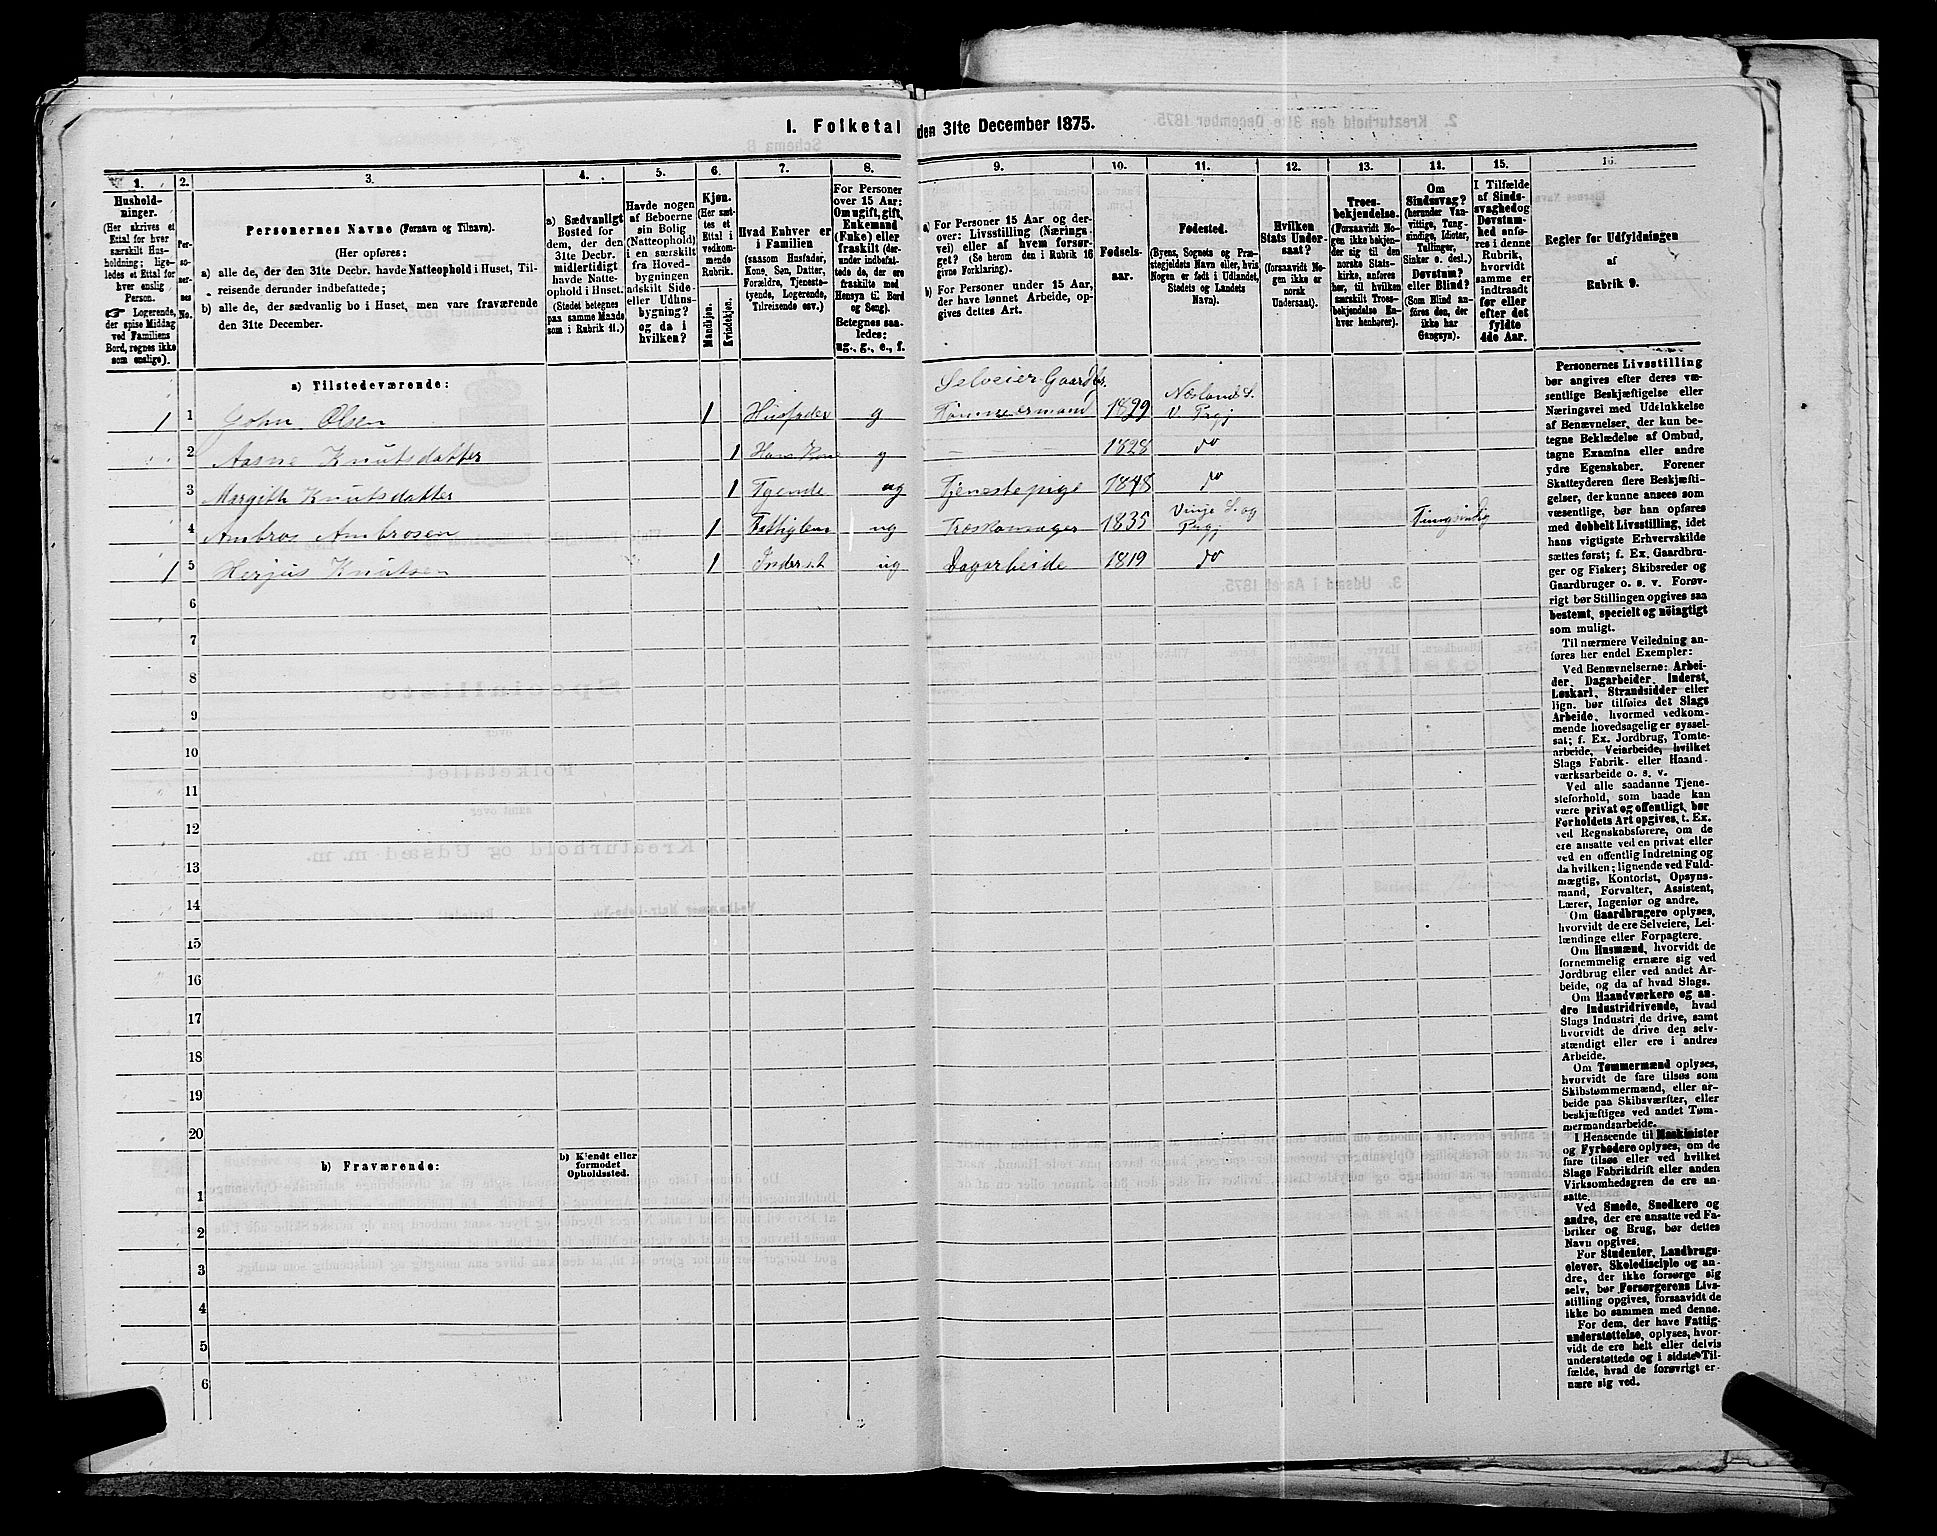 1. Folketal den 31te December 1875.
1.
Husholdninger.
(Her skrives et
Ettal for hver
særskilt Husholdning;
ligeledes et Ettal for
hver enslig
Person.
Logerende,
der spise Middag
ved Familiens
Bord, regnes ikke
som enslige).
2.
Personernes
No.
3.
Personernes Navne (Fornavn og Tilnavn).
(Her opføres:
a) alle de, der den 31te Decbr. havde Natteophold i Huset, Tilreisende derunder indbefattede;
b) alle de, der sædvanlig bo i Huset, men vare fraværende
den 31te December.
4.
a) Sædvanligt
Bosted for
dem, der den
31te Decbr.
midlertidigt
havde Natteophold i Huset.
(Stedet betegnes
paa samme Maade
som i Rubrik 11.)
5.
Havde nogen
af Beboerne
sin Bolig
(Natteophold)
i en særskilt
fra Hovedbygningen
adskilt Side-
eller Udhusbygning?
og da i
hvilken?
6.
Kjøn.
(Her sættes et
Ettal i
vedkommende
Rubrik.
Mandkjøn.
Kvindekjøn.
7.
Hvad Enhver er
i Familien
(saasom Husfader,
Kone, Søn, Datter,
Forældre, Tjenestetyende, Logerende,
Tilreisende osv.)
8.
For Personer
over 15 Aar:
Om ugift, gift,
Enkemand
(Enke) eller
fraskilt (derunder indbefattede de, der ere
fraskilte med
Hensyn til Bord
og Seng).
Betegnes saaledes:
ug., g., e., f.
9.
a) For Personer 15 Aar og derover: Livsstilling (Næringsvei) eller af hvem forsørget? (Se herom den i Rubrik 16
givne Forklaring).
b) For Personer under 15 Aar,
der have lønnet Arbeide, opgives dettes Art.
10.
Fødselsaar.
11.
Fødested.
(Byens, Sognets og Præstegjeldets Navn eller, hvis
Nogen er født i Udlandet,
Stedets og Landets
Navn).
12.
Hvilken
Stats Undersaat?
(forsaavidt Nogen ikke er
norsk
Undersaat).
13.
Troesbekjendelse.
(Forsaavidt Nogen ikke bekjender sig til den
norske Statskirke, anføres
her, til hvilken
særskilt Troesbekjendelse Enhver henhører).
14.
Om
Sindssvag?
(herunder Vanvittige, Tungsindige, Idioter,
Tullinger,
Sinker o. desl.)
Døvstum?
eller Blind?
(Som Blind anføres den, der
ikke har
Gangsyn).
15.
I Tilfælde
af Sindssvaghed og
Døvstumhed anføres i denne
Rubrik,
hvorvidt
samme er
indtraadt
før eller
efter det
fyldte
4de Aar.
16.
Regler for Udfyldningen
af
Rubrik 9.
a) Tilstedeværende:
Selveier Gaardbr.
1 1 John Olsen 1 Husfader g Tømmermand 1829 Næsland S. V Prgj
2 Aasne Knutsdatter 1 Hans Kone g 1828 do
3 Margith Knutsdatter 1 Tyende ug Tjenestepige 1848 do
4 Ambros Ambrosen 1 ug 1835 Vinje S. og Prgj Tungsindig
1 5 Herjus Knutsen 1 Inderst ug Dagarbeide 1819 do
6
7
8
9
10
11
12
13
14
15
16
17
18
19
20
b) Fraværende:
b) Kjendt eller
formodet
Opholdssted.
1
2
3
4
5
6
Personernes Livsstilling
bør angives efter deres væsentlige Beskjæftigelse eller
Næringsvei med Udelukkelse
af Benævnelser, der kun betegne Beklædelse af Ombud,
tagne Examina eller andre
ydre Egenskaber. Forener
Skatteyderen flere Beskjæftigelser, der kunne ansees som
væsentlige, bør han opføres
med dobbelt Livsstilling, idet
hans vigtigste Erhvervskilde
sættes først; f. Ex. Gaardbruger og Fisker; Skibsreder og
Gaardbruger o. s. v. Forøvrigt bør Stillingen opgives saa
bestemt, specielt og nöiagtigt
som muligt.
Til nærmere Veiledning anføres her endel Exempler:
Ved Benævnelserne: Arbeider, Dagarbeider, Inderst,
Løskarl, Strandsidder eller
lign. bør tilføies det Slags
Arbeide, hvormed vedkommende hovedsagelig er sysselsat; f. Ex. Jordbrug, Tomtearbeide, Veiarbeide, hvilket
Slags Fabrik- eller Haandværksarbeide o. s. v.
Ved alle saadanne Tjenesteforhold, som baade kan
være privat og offentligt, bør
Forholdets Art opgives, t. Ex.
ved Regnskabsførere, om de
ere ansatte ved en privat eller
ved en offentlig Indretning og
da hvilken; lignende ved Fuldmægtig, Kontorist, Opsynsmand, Forvalter, Assistent,
Lærer, Ingeniør og andre.
Om Gaardbrugere oplyses,
hvorvidt de ere Selveiere, Leilændinge eller Forpagtere.
Om Husmænd, hvorvidt de
fornemmelig ernære sig ved
Jordbrug eller ved andet Arbeide, og da af hvad Slags.
Om Haandværkere og andre Industridrivende, hvad
Slags Industri de drive, samt
hvorvidt de drive den selvstændigt eller ere i andres
Arbeide.
Om Tømmermænd oplyses,
hvorvidt de fare tilsøs som
Skibstømmermænd, eller arbeide paa Skibsværfter, eller
beskjæftiges ved andet Tømmermandsarbeide.
I Henseende til Maskinister
og Fyrbødere oplyses, om de
fare tilsøs eller ved hvilket
Slags Fabrikdrift eller anden
Virksomhedsgren de ere ansatte.
Ved Smede, Snedkere og
andre, der ere ansatte ved Fabriker og Brug, bør dettes
Navn opgives.
For Studenter, Landbrugselever, Skoledisciple og andre, der ikke forsørge sig
selv, bør Forsørgerens Livsstilling opgives, forsaavidt de
ikke bo sammen med denne.
For dem, der have Fattigunderstøttelse, oplyses, hvorvidt de ere helt eller delvis
understøttede og i sidste Tilfælde, hvad de forøvrigt ernære sig ved.